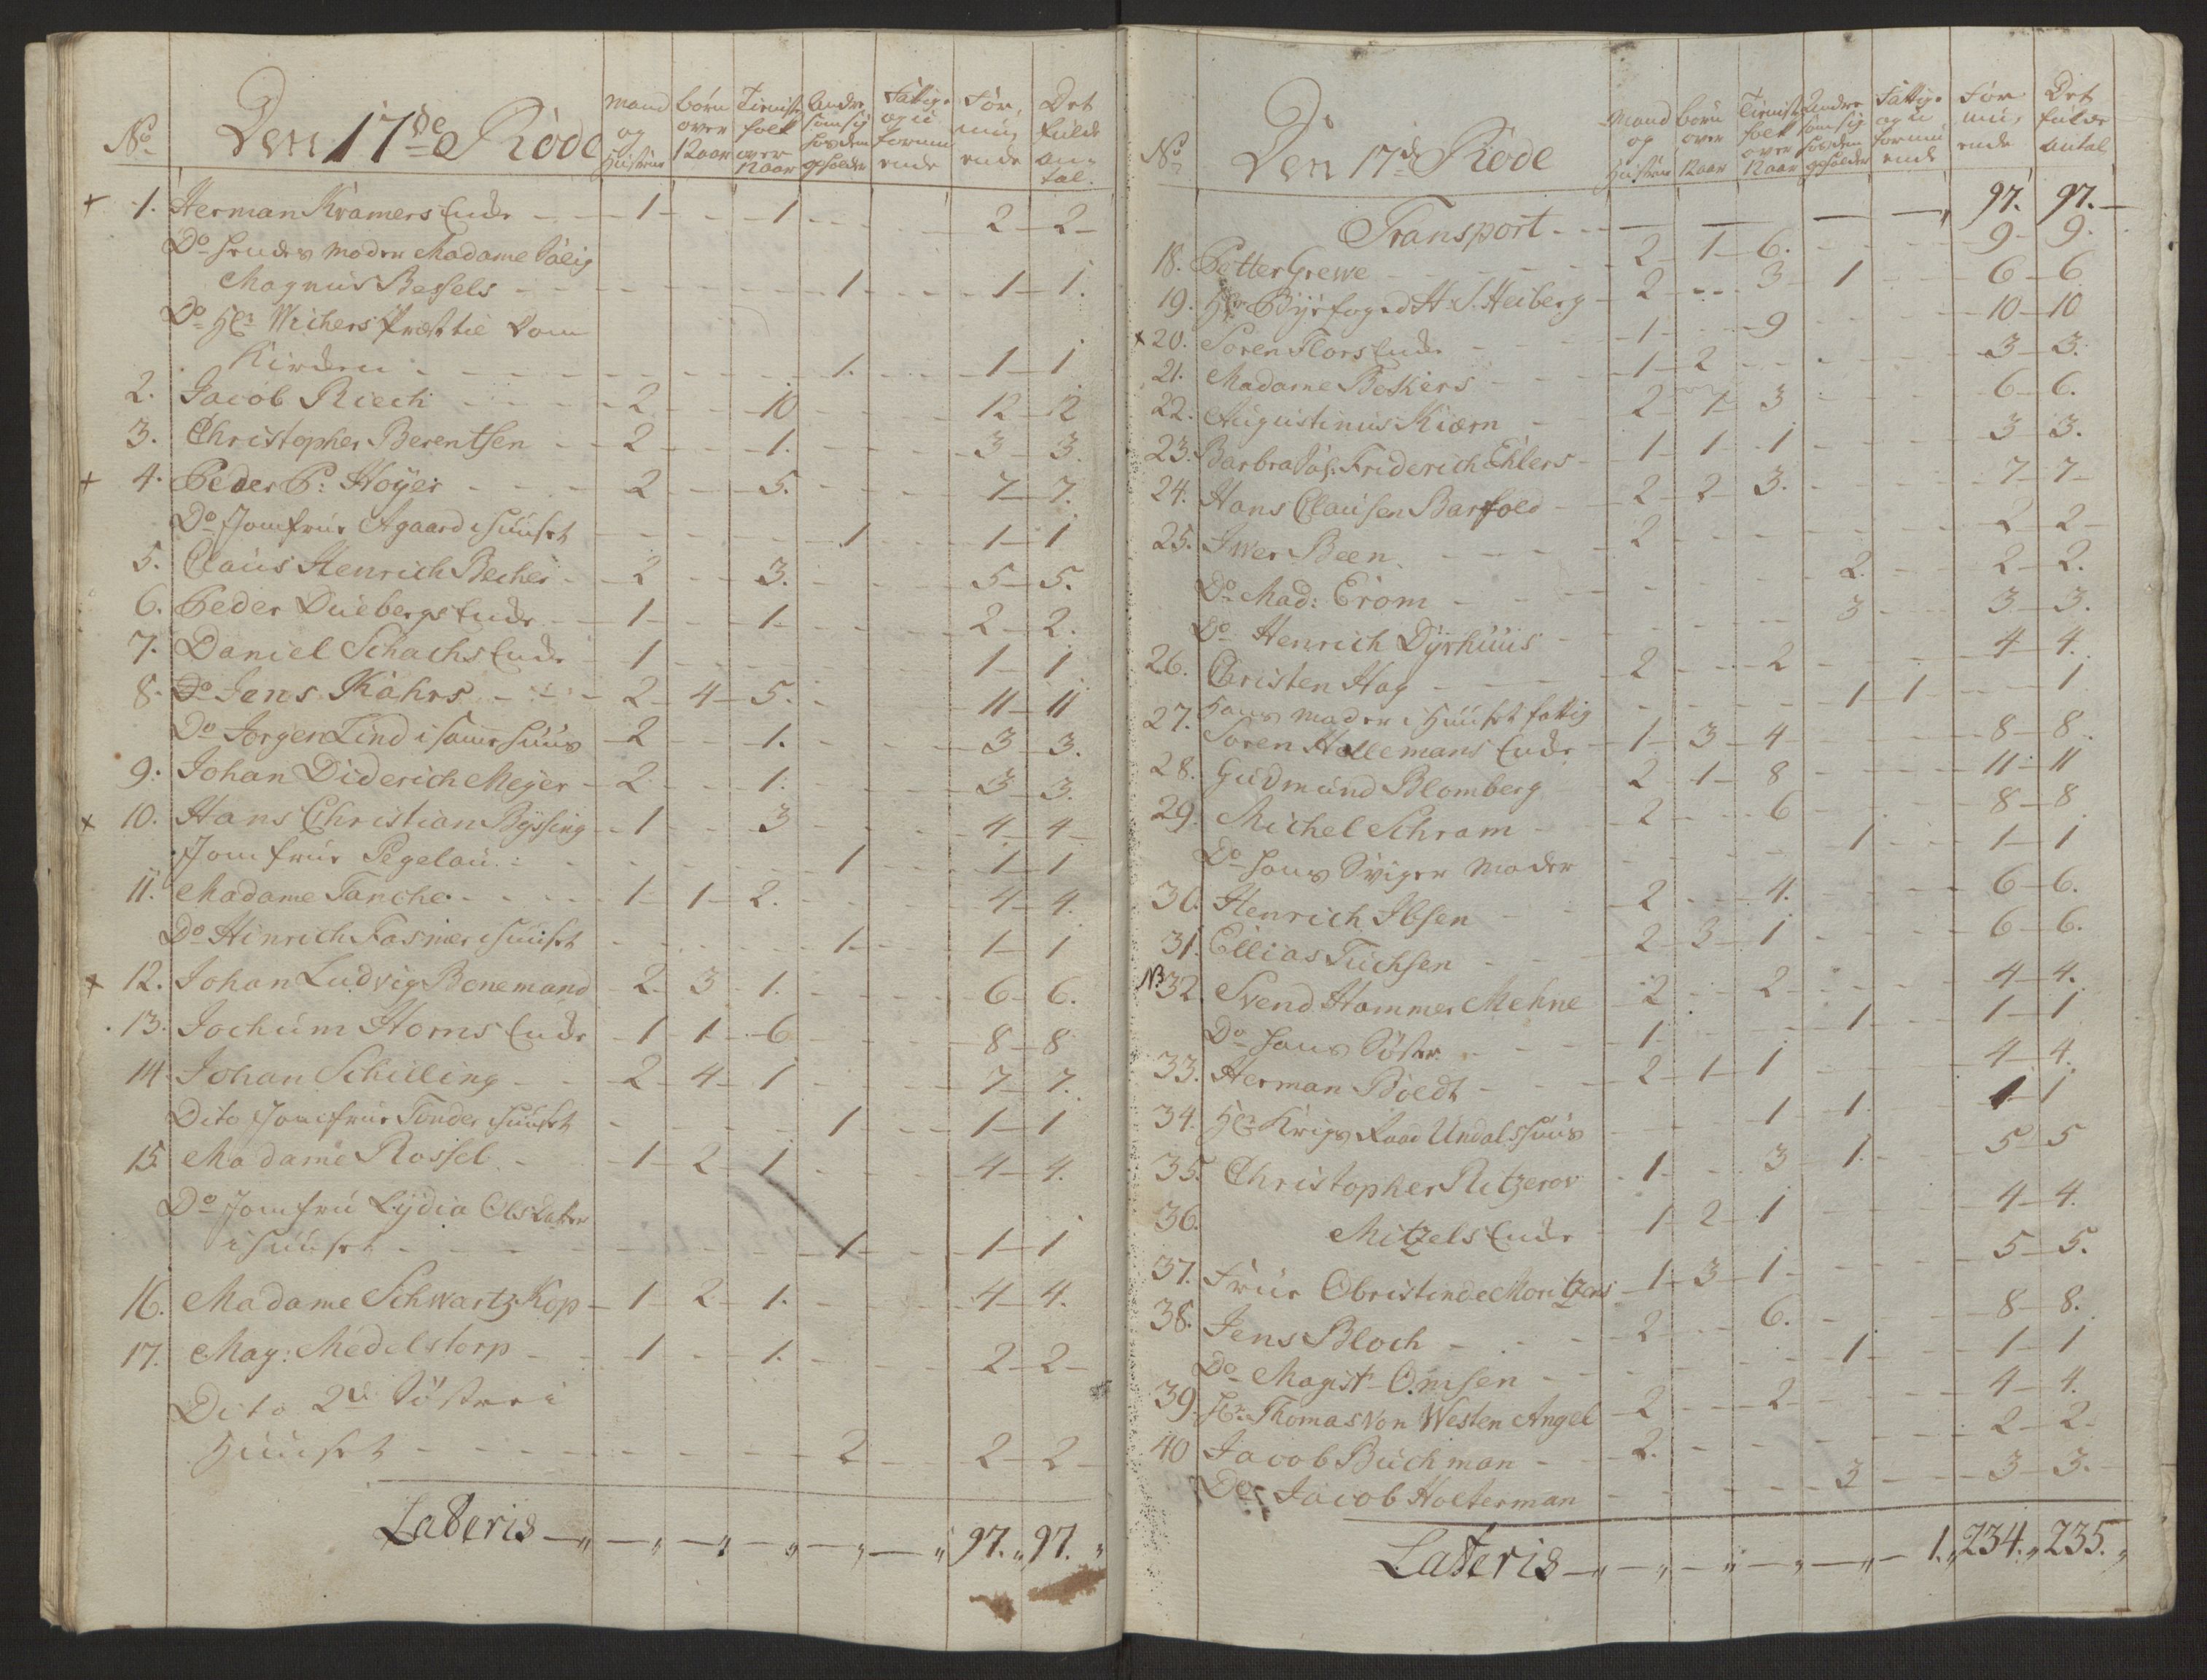 No Den 17de Rode Mand og Hustrue børn over 12 aar Tieniste folk over 12 aar Andre som sig hos dem opholder Fattige og u formu ende For mu ende Det fulde an tal.
+ 1. Herman Kramers Enke 1 1 2 2
Do hendes moder Madame Salig
Magnus Bessels 1 1 1.
Do Hr. Wichers Præst til Dom
Kirken 1. 1 1
2. Jacob Riech 2 10 12 12
3. Christopher Berentsen 2 1. 3 3.
+ 4. Peder P: Høyer 2 5. 7 7.
Do Jomfrue Agaard i huuset 1 1 1
5. Claus Henrich Becher 2 3. 5 5.
6. Peder Duebergs Enke 1 1 2 2.
7. Daniel Schachs Enke 1 1 1
8. Do Jens Kahrs 2 4 5. 11 11
Do Jørgen Lind i samme huus 2 1. 3 3.
9. Johan Diderich Meyer 2 1. 3 3.
+ 10. Hans Christian Byssing 1 3 4 4
Jomfrue Pegelau 1 1 1
11. Madame Tancke 1 1 2. 4 4.
Do Hinrich Fasmer i huuset 1. 1 1
+ 12. Johan Ludvig Bonemand 2 3 1. 6 6.
13. Jochum Horns Enke 1 1 6 8 8
14. Johan Schilling 2 4 1 7 7.
Dito Jomfrue Tønder i huuset 1 1 1
15. Madame Rossel 1 2 1 4 4.
Do Jomfru Lydia Olsdatter
i huuset 1 1 1
16. Madame Schwartz Kop 1 2 1. 4 4.
17. Mag: Medelstorp 1 1. 2 2
Dito 2de Søstre i
Huuset 2 2 2
Lateris 97. 97.
No Den 17de Rode Mand og Hustrue børn over 12 aar Tieniste folk over 12 aar Andre som sig hos dem opholder Fattige og u formu ende For mu ende Det fulde antal
Transport 97. 97.
18. Petter Grewe 2 1 6. 9 9.
19. Hr Byefoged H. S. Heiberg 2 3 1 6 6
+ 20. Søren Flors Enke 1 9 10 10
21. Madame Beskers 1 2 3 3.
22. Augustinus Kiærn 2 1 3 6 6.
23. Barbra Sal. Friderich Ehlers 1 1 1 3 3.
24. Hans Clausen Barfold 2 2 3. 7 7
25. Iwer Been 2 2 2
Do Mad: Erom 2. 2 2.
Do Henrich Dyrhuus 3 3 3.
26. Christen Hag 2 2 4 4.
Hans moder i Huuset fattig 1 1 1
27. Søren Hallemans Enke 1 3 4 8 8
28. Gudmund Blomberg 2 1 8 11 11
29. Michel Schram 2 6 8 8
Do hans Sviger moder 1 1 1
30. Henrich Ibsen 2 4. 6 6.
31. Ellias Tuchsen 2 3 1 6 6.
NB 32. Svend Hammer Mehne 2 2 4 4.
Do hans Søster 1 1 1 1
33. Herman Boedt 2 1 1 4 4.
34. Hr. Krigs Raad Undals huus 1 1. 1 1
35. Christopher Ritzerov 1 3 1. 5 5
36. Mitzels Enke 1 2 1 4 4.
37. Frue Obristinde Moritzens 1 3 1 5 5.
38. Jens Bloch 2 6. 8 8.
Do Magist. Omsen 1 1 1
39. Hr. Thomas Von Westen Angel 2 2 4 4.
40 Jacob Buchman 2. 2 2
Do Jacob Holterman 3 3 3.
Lateris 1. 234. 235.